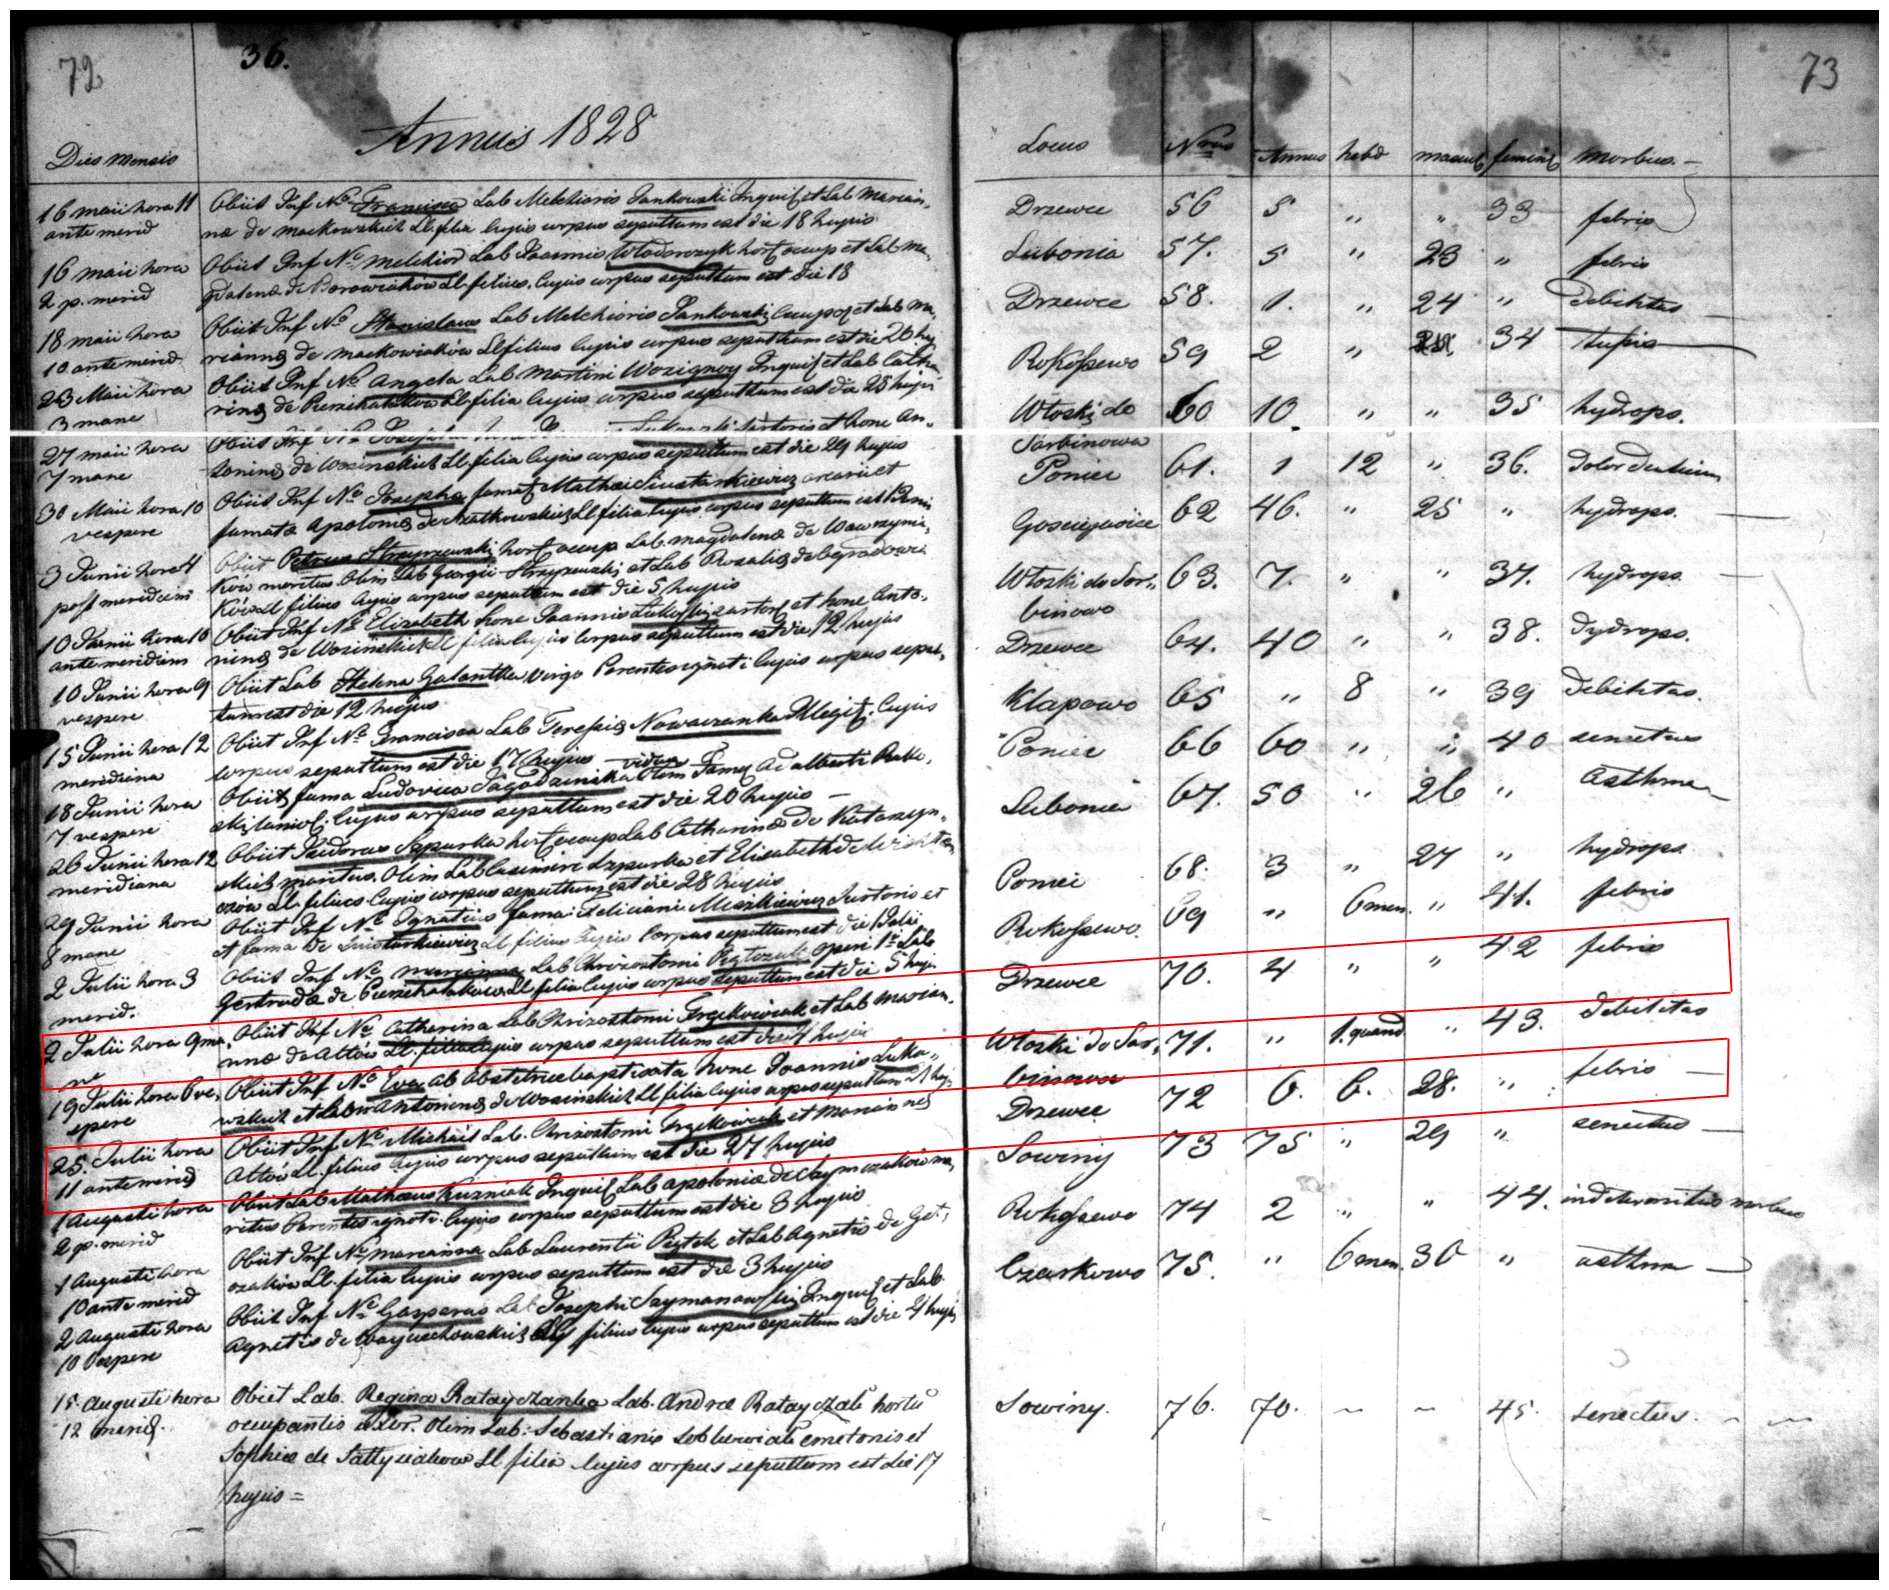 72
36.
Annus 1828
Dies mensis
16 maii hora 11
ante merid
Obiit Inf Ne Francisca Lab Melchioris Jankowski Inquil et Lab Marian,
næ de mackowskich Ll filia cujus corpus sepultum est die 18 hujus
16 maii hora
2 p. merid
Obiit Inf Ne Melchior Lab Joannis Włodarczyk hort occup et Lab Ma,
gdalenæ de Borowiaków Ll filius. Cujus corpus sepultum est die 18
18 maii hora
10 ante merid
Obiit Inf Ne Stanislaus Lab Melchioris Jankowski et Lab Ma,
riannæ de mackowiaków Ll filius Cujus corpus sepultum est die 20 huj
23 Maii hora
3 mane
Obiit Inf Ne Angela Lab Martini Wozignoy Inquil et Lab Catha
rinæ de Ll filia Cujus corpus sepultum est die 25 hujus
27 maii hora
7 mane
Obiit Inf Ne sartoris et hone An,
toninæ de Wosinskich Ll filia Cujus corpus sepultum est die 29 hujus
30 Maii hora 10
vespere
Obiit Inf Ne Josepha famat Mathæi et
famatæ Apoloniæ de Ll filia Cujus corpus sepultum est
3 Junii hora 4
post meridiem
Obiit Petrus Strzyzewski hort occup Lab magdalenæ de Wawrzynia,
ków maritus Olim Lab Georgii Strzyzewski et Lab Rosaliæ de
ków Ll filius Cujus corpus sepultum est die 5 hujus
10 Junii hora 10
ante meridiem
Obiit Inf Ne Elizabeth hone Joannis sartor et hone Anto,
ninæ de Wosinskich Ll filia Cujus Corpus sepultum est die 12 hujus
10 Junii hora 9
vespere
Obiit Lab Helena Galantka virgo Parentes ignoti Cujus corpus sepul,
tum est die 12 hujus
15 Junii hora 12
meridiana
Obiit Inf Ne Francisca Lab Teresiæ Nowaczanka Illegit. Cujus
corpus sepultum est die 17 hujus
18 Junii hora
7 vespere
Obiit fama Ludovica Jagodzinska vidua Olim Fam Adalberti
Cujus corpus sepultum est die 20 hujus
26 Junii hora 12
meridiana
Obiit Isidorus Szpurka hort occup Lab Catharinæ de Katarzyn,
skich maritus. Olim Lab Casimiri Szpurka et Elisabeth de
Ll filius Cujus corpus sepultum est die 28 hujus
29 Junii hora
8 mane
Obiit Inf Ne Ignatius fama: Feliciani Mizkiewicz Sartoris et
fama De Ll filius Cujus Corpus sepultum est die 1 Julii
2 Julii hora 3
merid.
Obiit Inf Ne Marianna Lab Chrizostomi et Lab
Gertrudæ de Ll filia Cujus corpus sepultum est die 5 huj
2 Julii hora 9 ma,
ne
Obiit Inf Ne Catharina Lab Chrizostomi Frąckowiak et Lab Marian,
næ de Attów Ll. filia Cujus corpus sepultum est die 4 hujus
19 Julii hora 6 ve,
spere
Obiit Inf Ne Eva ab Obstetrice baptisata hone Joannis Luka,,
wskich et hon Antoninæ de Wosinskich Ll filia Cujus corpus sepultum 21 huj
25. Julii hora
11 ante merid
Obiit Inf Ne Michael Lab. Chrizostomi Frąckowiak et Mariannæ
Attów Ll. filius Cujus corpus sepultum est die 27 hujus
1 Augusti hora
2 p. merid
Obiit Lab Mathæus Kuzniak Inquil Lab apoloniæ de Szymczaków ma,
ritus Parentes ignoti. Cujus corpus sepultum est die 3 hujus
1 Augusti hora
10 ante merid
Obiit Inf Ne Marcianna Lab Laurentii Piątek et Lab Agnetis de
Ll. filia Cujus corpus sepultum est die 3 hujus
2 Augusti hora
10 Vespere
Obiit Inf Ne Gasparus Lab Josephi Szymanowski Inquil et Lab.
Agnetis de Woyciechowskich filius Cujus corpus sepultum est die 4 hujus
15. Augusti hora
12 merid.
Obiit Lab. Regina Ratayczanka Lab. Andræ Ratayczak hortu
occupantis uxor. Olim Lab: Sebastianis emetonis et
Sophiæ de Ll filia Cujus corpus sepultum est die 17
hujus =
73
Locus Nrus Annus hebd mascul feminl Morbus.
Drzewce 56 5 " " 33 febris
Lubonia 57. 5 " 23 " febris
Drzewce 58. 1. " 24 " debilitas
Rokossowo 59 2 " 34 tussis
Włoski do 60 10. " " 35 hydrops.
Sarbinowa
Poniec 61. 1 12 " 36. dolor dentium
Gosciejewice 62 46. " 25 " hydrops.
Włoski do Sar,, 63. 7. " " 37. hydrops.
binowo
Drzewce 64. 40 " " 38. hydrops.
Klapowo 65 " 8 " 39 debilitas.
Poniec 66 60 " " 40 senectus
Lubonia 67. 50 " 26 " Asthma
Poniec 68. 3 " 27 " hydrops.
Rokossowo. 69 " 6 men. " 41. febris
Drzewce 70. 4 " " 42 febris
Włoski do Sar, 71. " 1. quand. " 43. debilitas
binowa
Drzewce 72 6. 6. 28. " febris
Sowiny 73 75 " 29 " senectus
Rokossowo 74 2 " " 44. indeterminatus morbus
Czarkowo 75. " 6 men. 30 " asthma
Sowiny. 76. 70. ~ ~ 45. senectus.